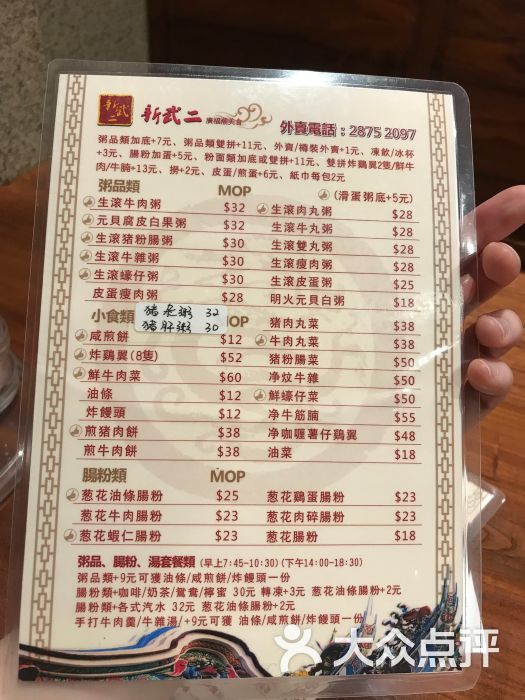 新武二
新武二 康福順美食
外賣電話：2875 2097
粥品類加底+7元、粥品類雙拼+11元、外賣/樽裝外賣+1元、凍飲/冰杯
+3元、腸粉加蛋+5元、粉面類加底或雙拼+11元、雙拼炸鷄翼2隻/鮮牛
肉/牛腩+13元、撈+2元、皮蛋/煎蛋+6元、紙巾每包2元
粥品類 MOP (滑蛋粥底+5元)
生滾牛肉粥 $32 生滾肉丸粥 $28
元貝腐皮白果粥 $32 生滾牛丸粥 $28
生滾猪粉腸粥 $30 生滾雙丸粥 $28
生滾牛雜粥 $30 生滾瘦肉粥 $28
生滾蠔仔粥 $30 生滾皮蛋粥 $25
皮蛋瘦肉粥 $28 明火元貝白粥 $18
猪红粥 32
猪肝粥 30
小食類 MOP 猪肉丸菜 $38
咸煎餅 $12 牛肉丸菜 $38
炸鷄翼(8隻) $52 猪粉腸菜 $50
鮮牛肉菜 $60 净炆牛雜 $50
油條 $12 鮮蠔仔菜 $50
炸饅頭 $12 净牛筋腩 $55
煎猪肉餅 $38 净咖喱薯仔鷄翼 $48
煎牛肉餅 $38 油菜 $18
腸粉類 MOP
葱花油條腸粉 $25 葱花鷄蛋腸粉 $23
葱花牛肉腸粉 $23 葱花肉碎腸粉 $23
葱花蝦仁腸粉 $23 葱花腸粉 $18
粥品、腸粉、湯套餐類 (早上7:45-10:30) (下午14:00-18:30)
粥品類+9元可獲油條/咸煎餅/炸饅頭一份
腸粉類+咖啡/奶茶/鴛鴦/檸蜜 30元 轉凍+3元 葱花油條腸粉+2元
腸粉類+各式汽水 32元 葱花油條腸粉+2元
手打牛肉羹/牛雜湯/+9元可獲 油條/咸煎餅/炸饅頭一份
大众点评